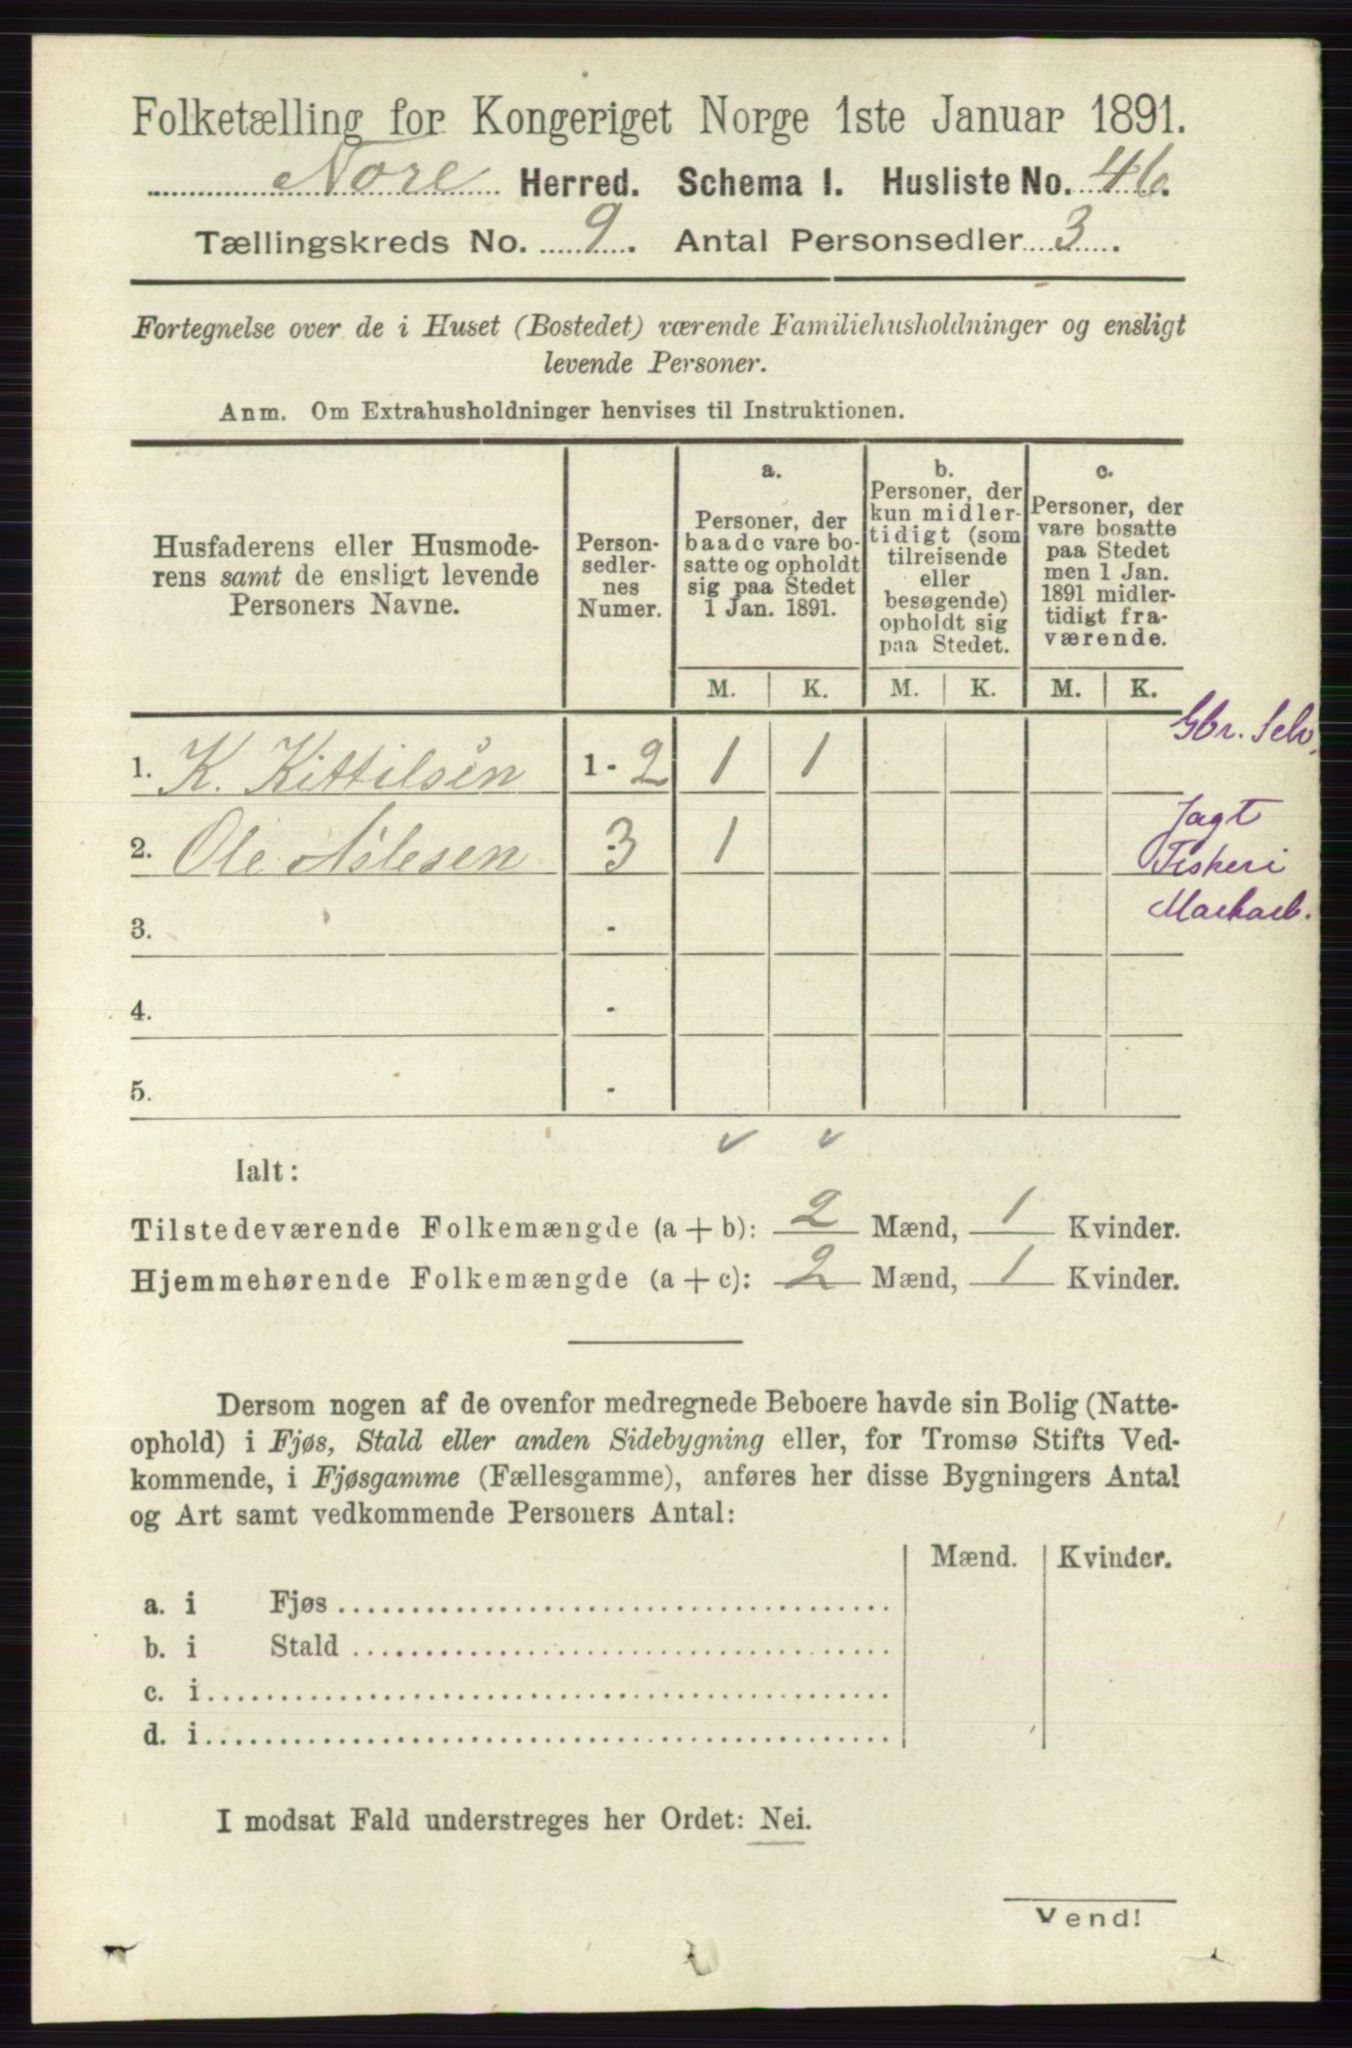 Folketælling for Kongeriget Norge 1ste Januar 1891.
Nore Herred. Schema I. Husliste No. 46.
Tællingskreds No. 9. Antal Personsedler 3.
Fortegnelse over de i Huset (Bostedet) værende Familiehusholdninger og ensligt
levende Personer.
Anm. Om Extrahusholdninger henvises til Instruktionen.
Husfaderens eller Husmode-
rens samt de ensligt levende
Personers Navne.
Person-
sedler-
nes
Numer.
a.
Personer, der
baade vare bo-
satte og opholdt
sig paa Stedet
1 Jan. 1891.
b.
Personer, der
kun midler-
tidigt (som
tilreisende
eller
besøgende)
opholdt sig
paa Stedet.
c.
Personer, der
vare bosatte
paa Stedet
men 1 Jan.
1891 midler-
tidigt fra-
værende.
M. K. M. K. M. K.
1. K. Kittilsen 1 - 2 1 1
Gbr. Selv.
2. Ole Aslesen 3 1
Jagt
Fiskeri
3. -
4. -
5. -
Ialt:
Tilstedeværende Folkemængde (a + b): 2 Mænd, 1 Kvinder.
Hjemmehørende Folkemængde (a + c): 2 Mænd, 1 Kvinder.
Dersom nogen af de ovenfor medregnede Beboere havde sin Bolig (Natte-
ophold) i Fjøs, Stald eller anden Sidebygning eller, for Tromsø Stifts Ved-
kommende, i Fjøsgamme (Fællesgamme), anføres her disse Bygningers Antal
og Art samt vedkommende Personers Antal:
Mænd. Kvinder.
a. i Fjøs
b. i Stald
c. i
d. i
I modsat Fald understreges her Ordet: Nei.
Vend!